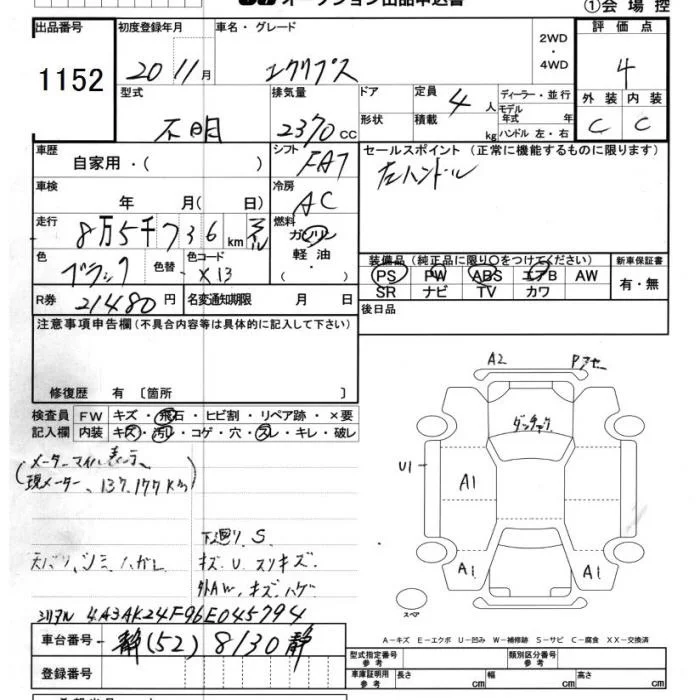 オークション出品申込書
①会場控
出品番号 初度登録年月 車名・グレード 2WD・4WD 評価点
1152 20 11月 エクリプス 4
型式 排気量 ドア 定員 ディーラー・並行 外装 内装
不明 2370cc 4人 モデル年式 年 C C
形状 積載 kg ハンドル 左・右
車歴 シフト セールスポイント(正常に機能するものに限ります)
自家用・( ) FA7 左ハンドル
車検 冷房
年 月( 日) AC
走行 燃料
8万5千736km マイル ガソリン
軽油・( )
色 色替 色コード
ブラック X13
装備品(純正品に限り○をつけてください) 新車保証書
PS PW ABS エアB AW 有・無
SR ナビ TV カワ
R券 21480円 名変通知期限 月 日 後日品
注意事項申告欄(不具合内容等は具体的に記入して下さい)
修復歴 有 〔箇所 〕
検査員 FW キズ・飛石・ヒビ割・リペア跡・×要
記入欄 内装 キズ・汚レ・コゲ・穴・スレ・キレ・破レ
(メーターマイル表示、
現メーター、137,177Km)
下廻り、S
天バリ、シミ、ハガレ キズ、U、スリキズ、
外AW、キズ、ハゲ
A2
U1
A1
A1
A1
スペア
シリアル 4A3AK24F96E045794
A-キズ E-エクボ U-凹み W-補修跡 S-サビ C-腐食 XX-交換済
車台番号 静(52)8130静
型式指定番号 参考 類別区分番号 参考
登録番号 車庫証明用 参考 長さ cm 幅 cm 高さ cm